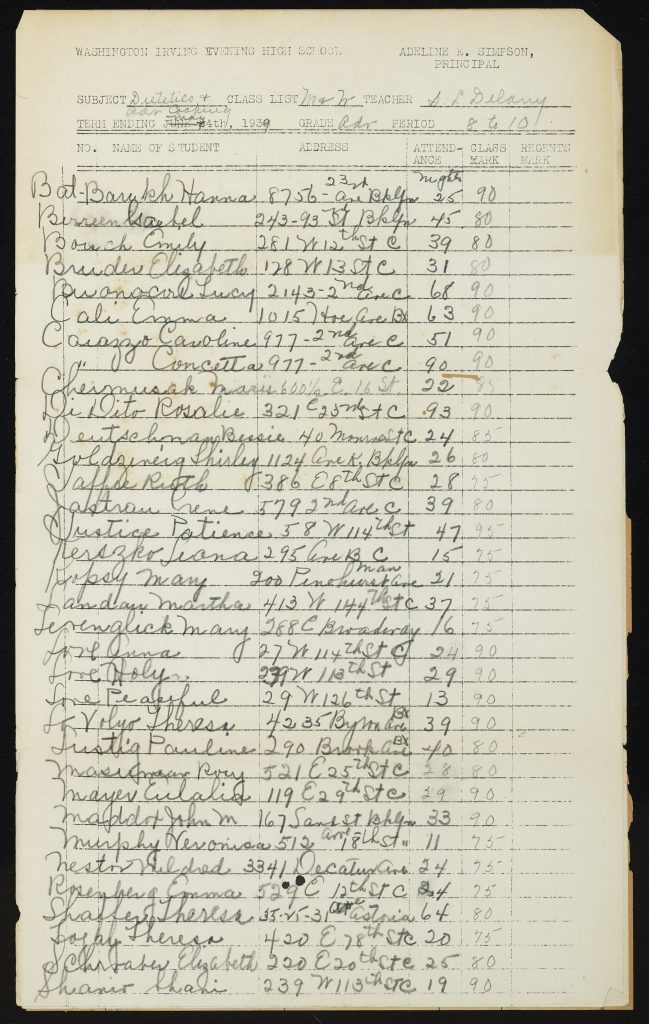 WASHINGTON IRVING EVENING HIGH SCHOOL ADELINE E. SIMPSON,
PRINCIPAL
SUBJECT Dietetics & CLASS LIST M & W TEACHER S. L. Delany
adv Cooking
TERM ENDING May 24th, 1939 GRADE adv PERIOD 8 to 10
NO. NAME OF STUDENT ADDRESS ATTEND- CLASS REGENTS
ANCE MARK MARK
nights
Bat-Barukh Hanna 8756-23rd Ave Bklyn 25 90
Isabel 243-93 St Bklyn 45 80
Bouch Emily 281 W 12th St C 39 80
Bruder Elizabeth 128 W 13 St C 31 80
Buongcore Lucy 2143-2nd Ave C 68 90
Cali Emma 1015 Hoe Ave Bx 63 90
Caiazzo Caroline 977-2nd Ave C 51 90
" Concetta 977-2nd Ave C 90 90
Mary 600½ E. 16 St 22 85
Di Dito Rosalie 321 E 23rd St C 93 90
Deutschman Bessie 40 Monroe St C 24 85
Goldzweig Shirley 1124 Ave K. Bklyn 26 80
Jaffee Ruth 386 E 8th St C 28 75
Jastrau Irene 579 2nd Ave C 39 80
Justice Patience 58 W 114th St 47 95
Kerszko 295 Ave B C 15 75
Kopsy Mary 200 Pinehurst Ave Man 21 75
Landau Martha 413 W 144th St C 37 75
Levenglick Mary 288 E Broadway 16 75
Love Anna 27 W 114th St C 24 90
Love Holy 239 W 113th St 29 90
Love Peaceful 29 W 126th St 13 90
Lo Volyo Theresa 4235 Byron Ave Bx 39 90
Lustig Pauline 290 Brook Ave Bx 40 80
Rory 521 E 25th St C 28 80
Mayer Eulalia 119 E 29th St C 29 90
Maddox John M 167 Sand St Bklyn 33 90
Murphy Veronica 512 18th St " 11 75
Nestor Mildred 3341 Decatur Ave 24 75
Rosenberg Emma 529 E 12th St C 24 75
Shaffer Theresa 33-25-31 Ave Astoria 64 80
Theresa 420 E 78th St C 20 75
Schrader Elizabeth 220 E 20th St C 25 80
Shanev Shani 239 W 113th St C 19 90